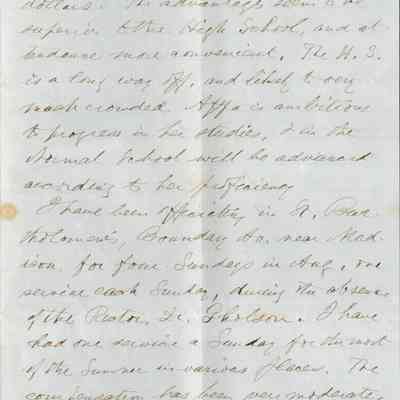 dollars. The advantages seem to be
superior to the High School, and at-
tendance more convenient. The H. S.
is a long way off, and likely to very
much crowded. Affa is ambitious
to progress in her studies, & in the
Normal School will be advanced
according to her proficiency.
I have been officiating in St. Bar-
tholomew's, Boundary Av. near Mad-
ison for four Sundays in Aug, one
service each Sunday, during the absence
of the Rector, Dr. Gholson. I have
had one service a Sunday for the most
of the Summer in various places. The
compensation has been very moderate,